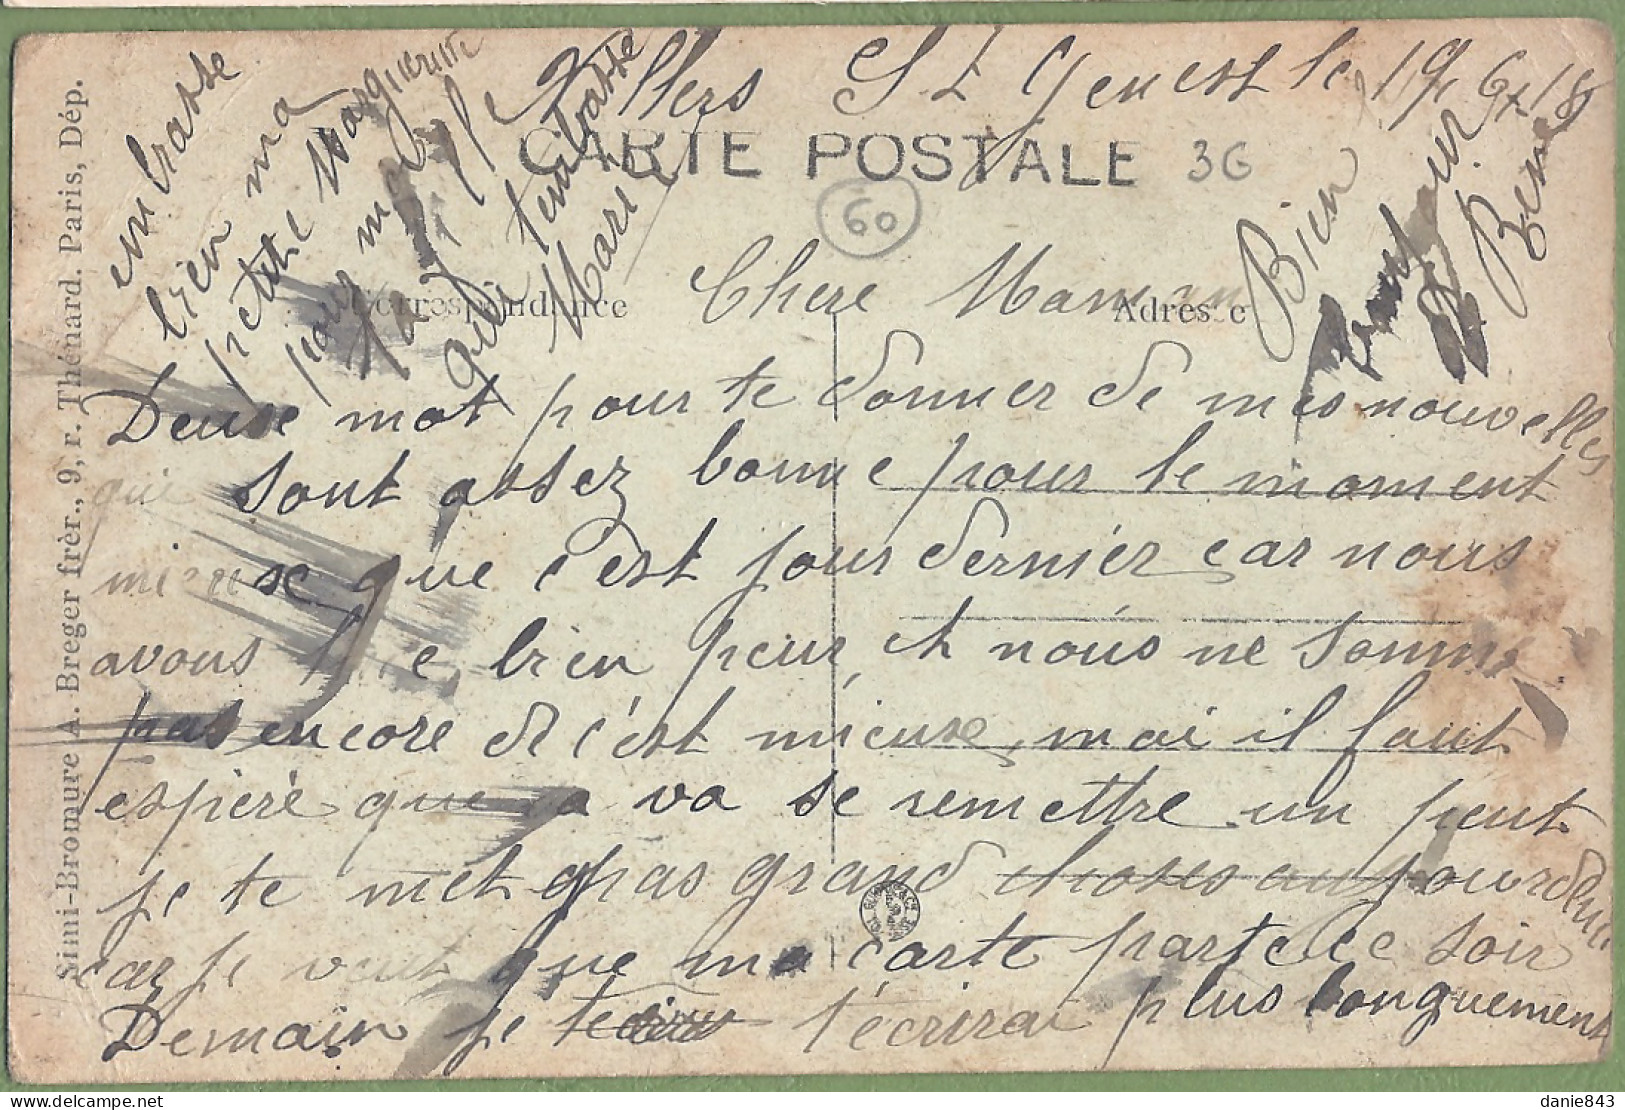 Villers St Genest le 19 6 18
CARTE POSTALE
36
60
Correspondance
Adresse
Chere Maman
Deuse mot pour te donner de mes nouvelles
qui sont assez bonne pour le moment
mieuse que c'est jour dernier car nous
avons bien peur et nous ne somme
pas encore de c'est mieuse, mai il faut
espéré que sa va se remettre un peut
je te met pas grand choses aujourdhui
car je veut que ma carte parte ce soir
Demain je t'écrirai plus longuement
Bien
René
embrasse
bien ma
petite Marguerite
pour moi
qui t'embrasse
Marie
Simi-Bromure A. Breger frèr., 9, r. Thénard. Paris, Dép.
danie843